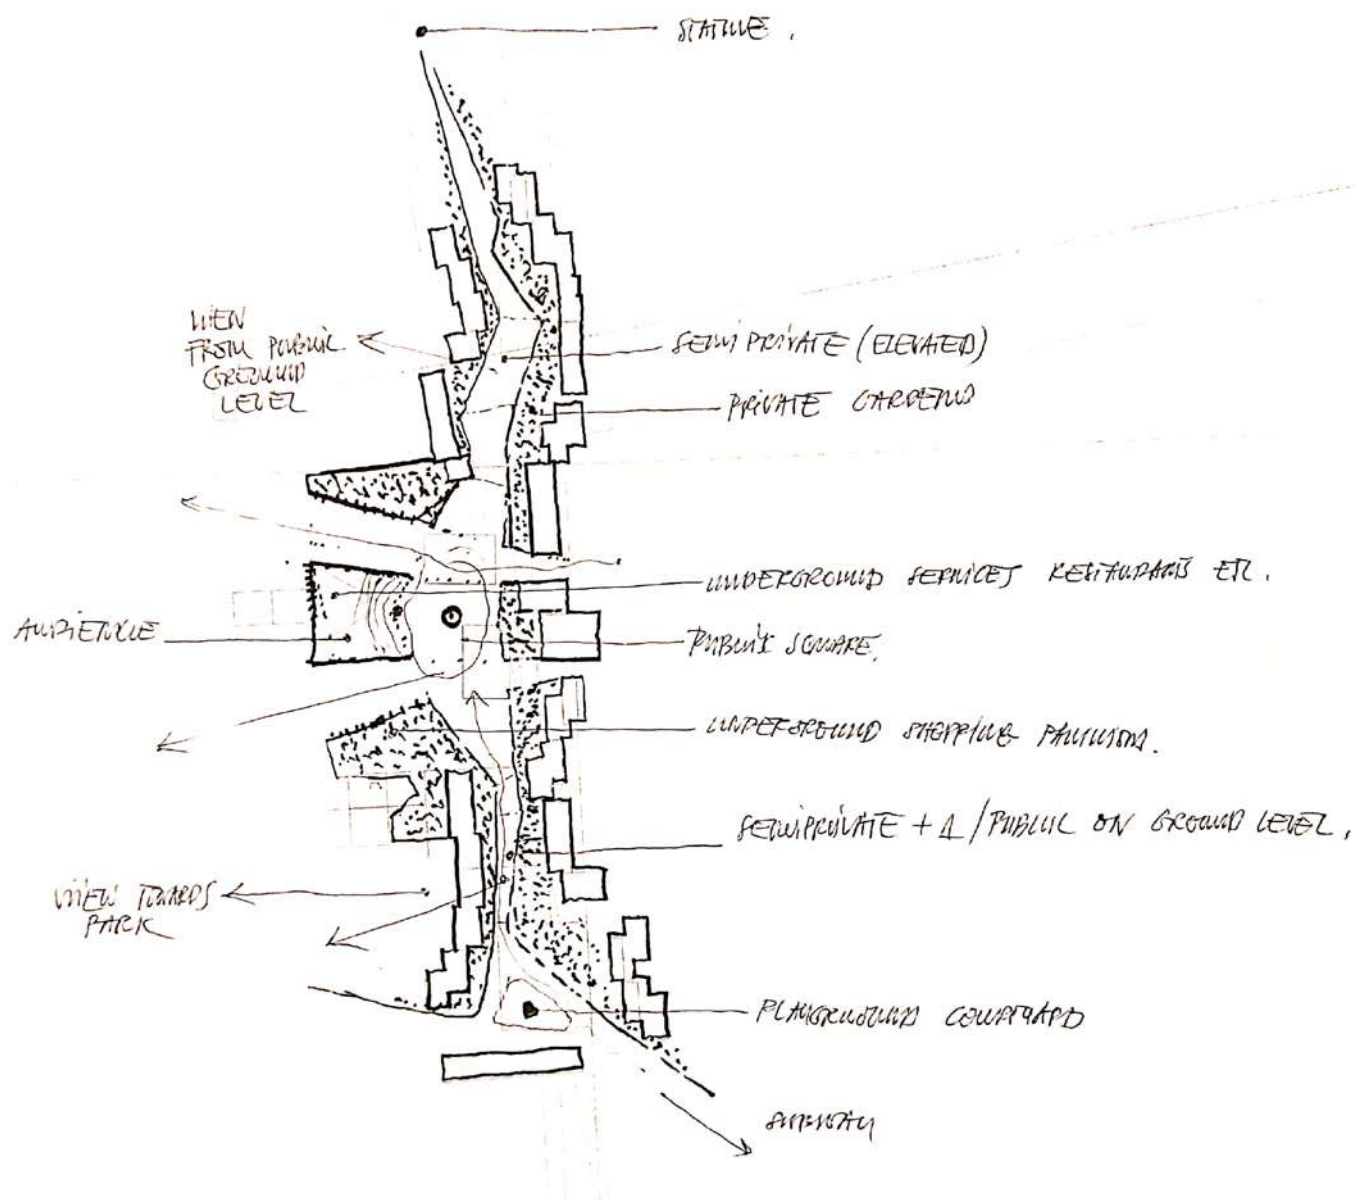 STATUE.
VIEW
FROM PUBLIC
GROUND
LEVEL
SEMIPRIVATE (ELEVATED)
PRIVATE GARDENS
UNDERGROUND SERVICES RESTAURANTS ETC.
AUDIENCE
PUBLIC SQUARE.
UNDERGROUND SHOPPING PAVILIONS.
SEMIPRIVATE + 1 / PUBLIC ON GROUND LEVEL.
VIEW TOWARDS
PARK
PLAYGROUND COURTYARD
SUBWAY